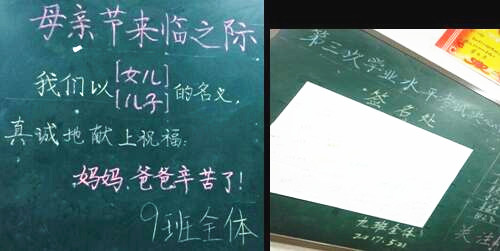 母亲节来临之际
我们以[女儿][儿子]的名义,
真诚地献上祝福:
妈妈,爸爸辛苦了!
9班全体
第三次学业水平考试
签名处
九班全体